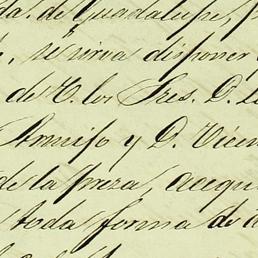 da. de Guadalupe, p
se sirva disponer
de V. los Sres. D. L
y D. Vicen
de la presa, acequi
toda forma de d